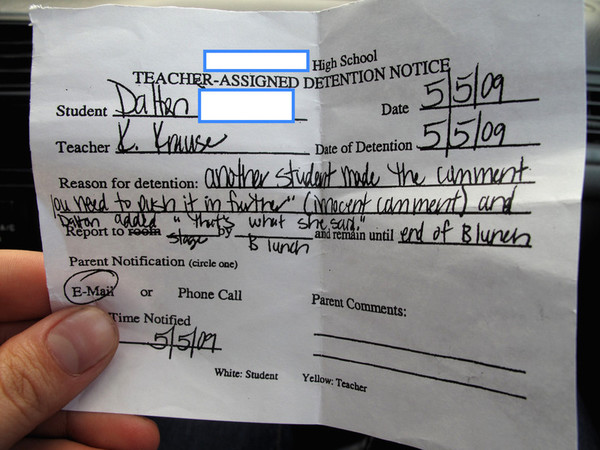 High School
TEACHER-ASSIGNED DETENTION NOTICE
Student Dalton Date 5/5/09
Teacher K. Krause Date of Detention 5/5/09
Reason for detention: another student made the comment
"you need to push it in further" (innocent comment) and
Dalton added "that's what she said."
Report to room stage by B lunch and remain until end of B lunch
Parent Notification (circle one)
E-Mail or Phone Call Parent Comments:
Time Notified
5/5/09
White: Student Yellow: Teacher